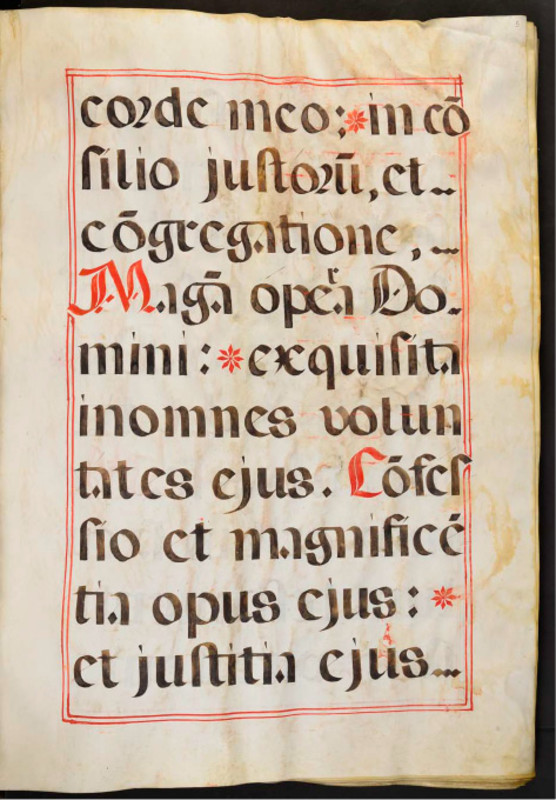 corde meo; * in cō
ſilio juſtorū, et..
cōgregatione, ...
Magā opera Do.
mini: * exquiſita
inomnes volun
tates ejus. Cōfeſ
ſio et magnificē
tia opus ejus: *
et juſtitia ejus...